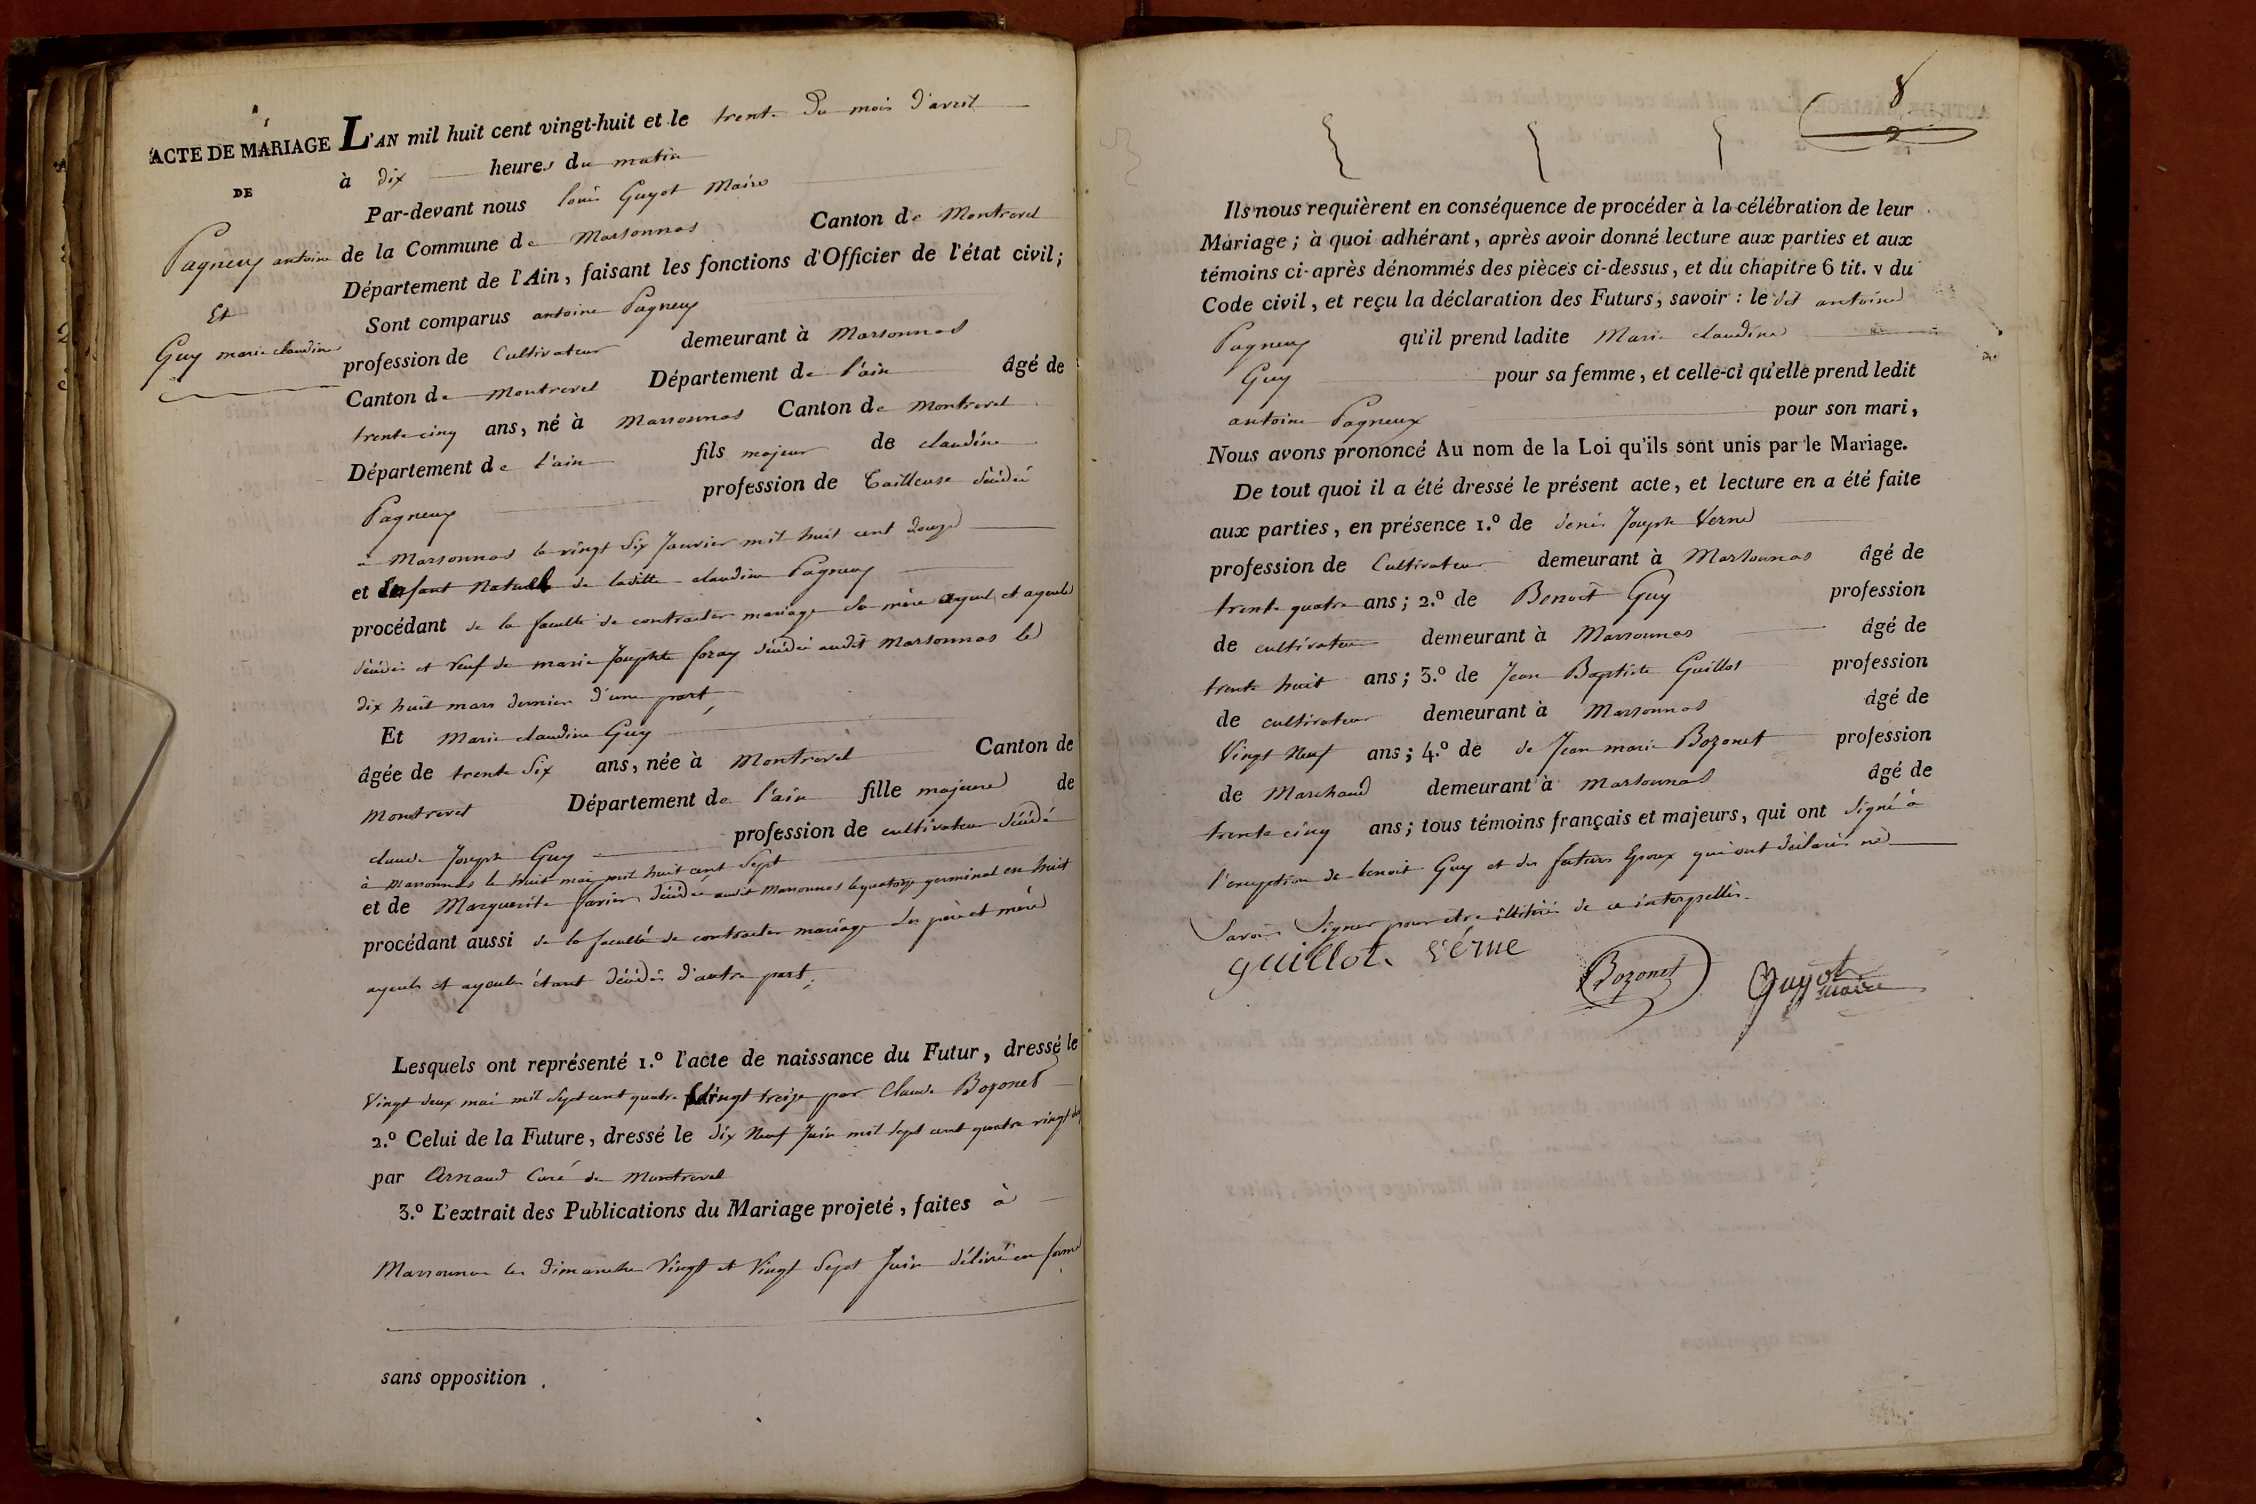 ACTE DE MARIAGE
DE
Pagneux antoine
Et
Guy marie claudine
L'AN mil huit cent vingt-huit et le trente du mois d'avril
à dix heures du matin
Par-devant nous louis Guyot Maire
de la Commune de Marsonnas Canton de Montrevel
Département de l'Ain, faisant les fonctions d'Officier de l'état civil;
Sont comparus antoine Pagneux
profession de Cultivateur demeurant à Marsonnas
Canton de Montrevel Département de l'ain âgé de
trente cinq ans, né à Marsonnas Canton de Montrevel
Département de l'ain fils majeur de claudine
Pagneux profession de Tailleuse décédée
à Marsonnas le vingt six Janvier mil huit cent douze
et Enfant Naturel de laditte claudine Pagneux
procédant de la faculté de contracter mariage sa mère ayeul et ayeule
décédés et veuf de marie Josephte foray décédée audit Marsonnas le
dix huit mars dernier d'une part,
Et Marie claudine Guy
âgée de trente Six ans, née à Montrevel Canton de
Montrevel Département de l'ain fille majeure de
claude Joseph Guy profession de cultivateur décédé
à Marsonnas le huit mai mil huit cent Sept
et de Marguerite favier décédée audit Marsonnas le quatorze germinal en huit
procédant aussi de la faculté de contracter mariage Ses père et mère
ayeuls et ayeules étant décédés d'autre part;
Lesquels ont représenté 1.º l'acte de naissance du Futur, dressé le
Vingt deux mai mil Sept cent quatre vingt treize par Claude Bozonet
2.º Celui de la Future, dressé le dix Neuf Juin mil Sept cent quatre vingt
par Arnaud Curé de Montrevel
3.º L'extrait des Publications du Mariage projeté, faites à
Marsonnas les dimanches Vingt et Vingt Sept Juin délivré en forme
sans opposition.
8
Ils nous requièrent en conséquence de procéder à la célébration de leur
Mariage; à quoi adhérant, après avoir donné lecture aux parties et aux
témoins ci-après dénommés des pièces ci-dessus, et du chapitre 6 tit. v du
Code civil, et reçu la déclaration des Futurs, savoir : le dit antoine
Pagneux qu'il prend ladite Marie claudine
Guy pour sa femme, et celle-ci qu'elle prend ledit
antoine Pagneux pour son mari,
Nous avons prononcé Au nom de la Loi qu'ils sont unis par le Mariage.
De tout quoi il a été dressé le présent acte, et lecture en a été faite
aux parties, en présence 1.º de denis Joseph Verne
profession de Cultivateur demeurant à Marsonnas âgé de
trente quatre ans; 2.º de Benoît Guy profession
de cultivateur demeurant à Marsonnas âgé de
trente huit ans; 3.º de Jean Baptiste Guillot profession
de cultivateur demeurant à Marsonnas âgé de
Vingt Neuf ans; 4.º de de Jean marie Bozonet profession
de Marchand demeurant à Marsonnas âgé de
trente cinq ans; tous témoins français et majeurs, qui ont Signé à
l'exception de benoit Guy et des futurs Epoux qui ont déclarés ne
Savoir Signer pour être illitérés de ce interpellés.
guillot Verne
Bozonet
Guyot
maire